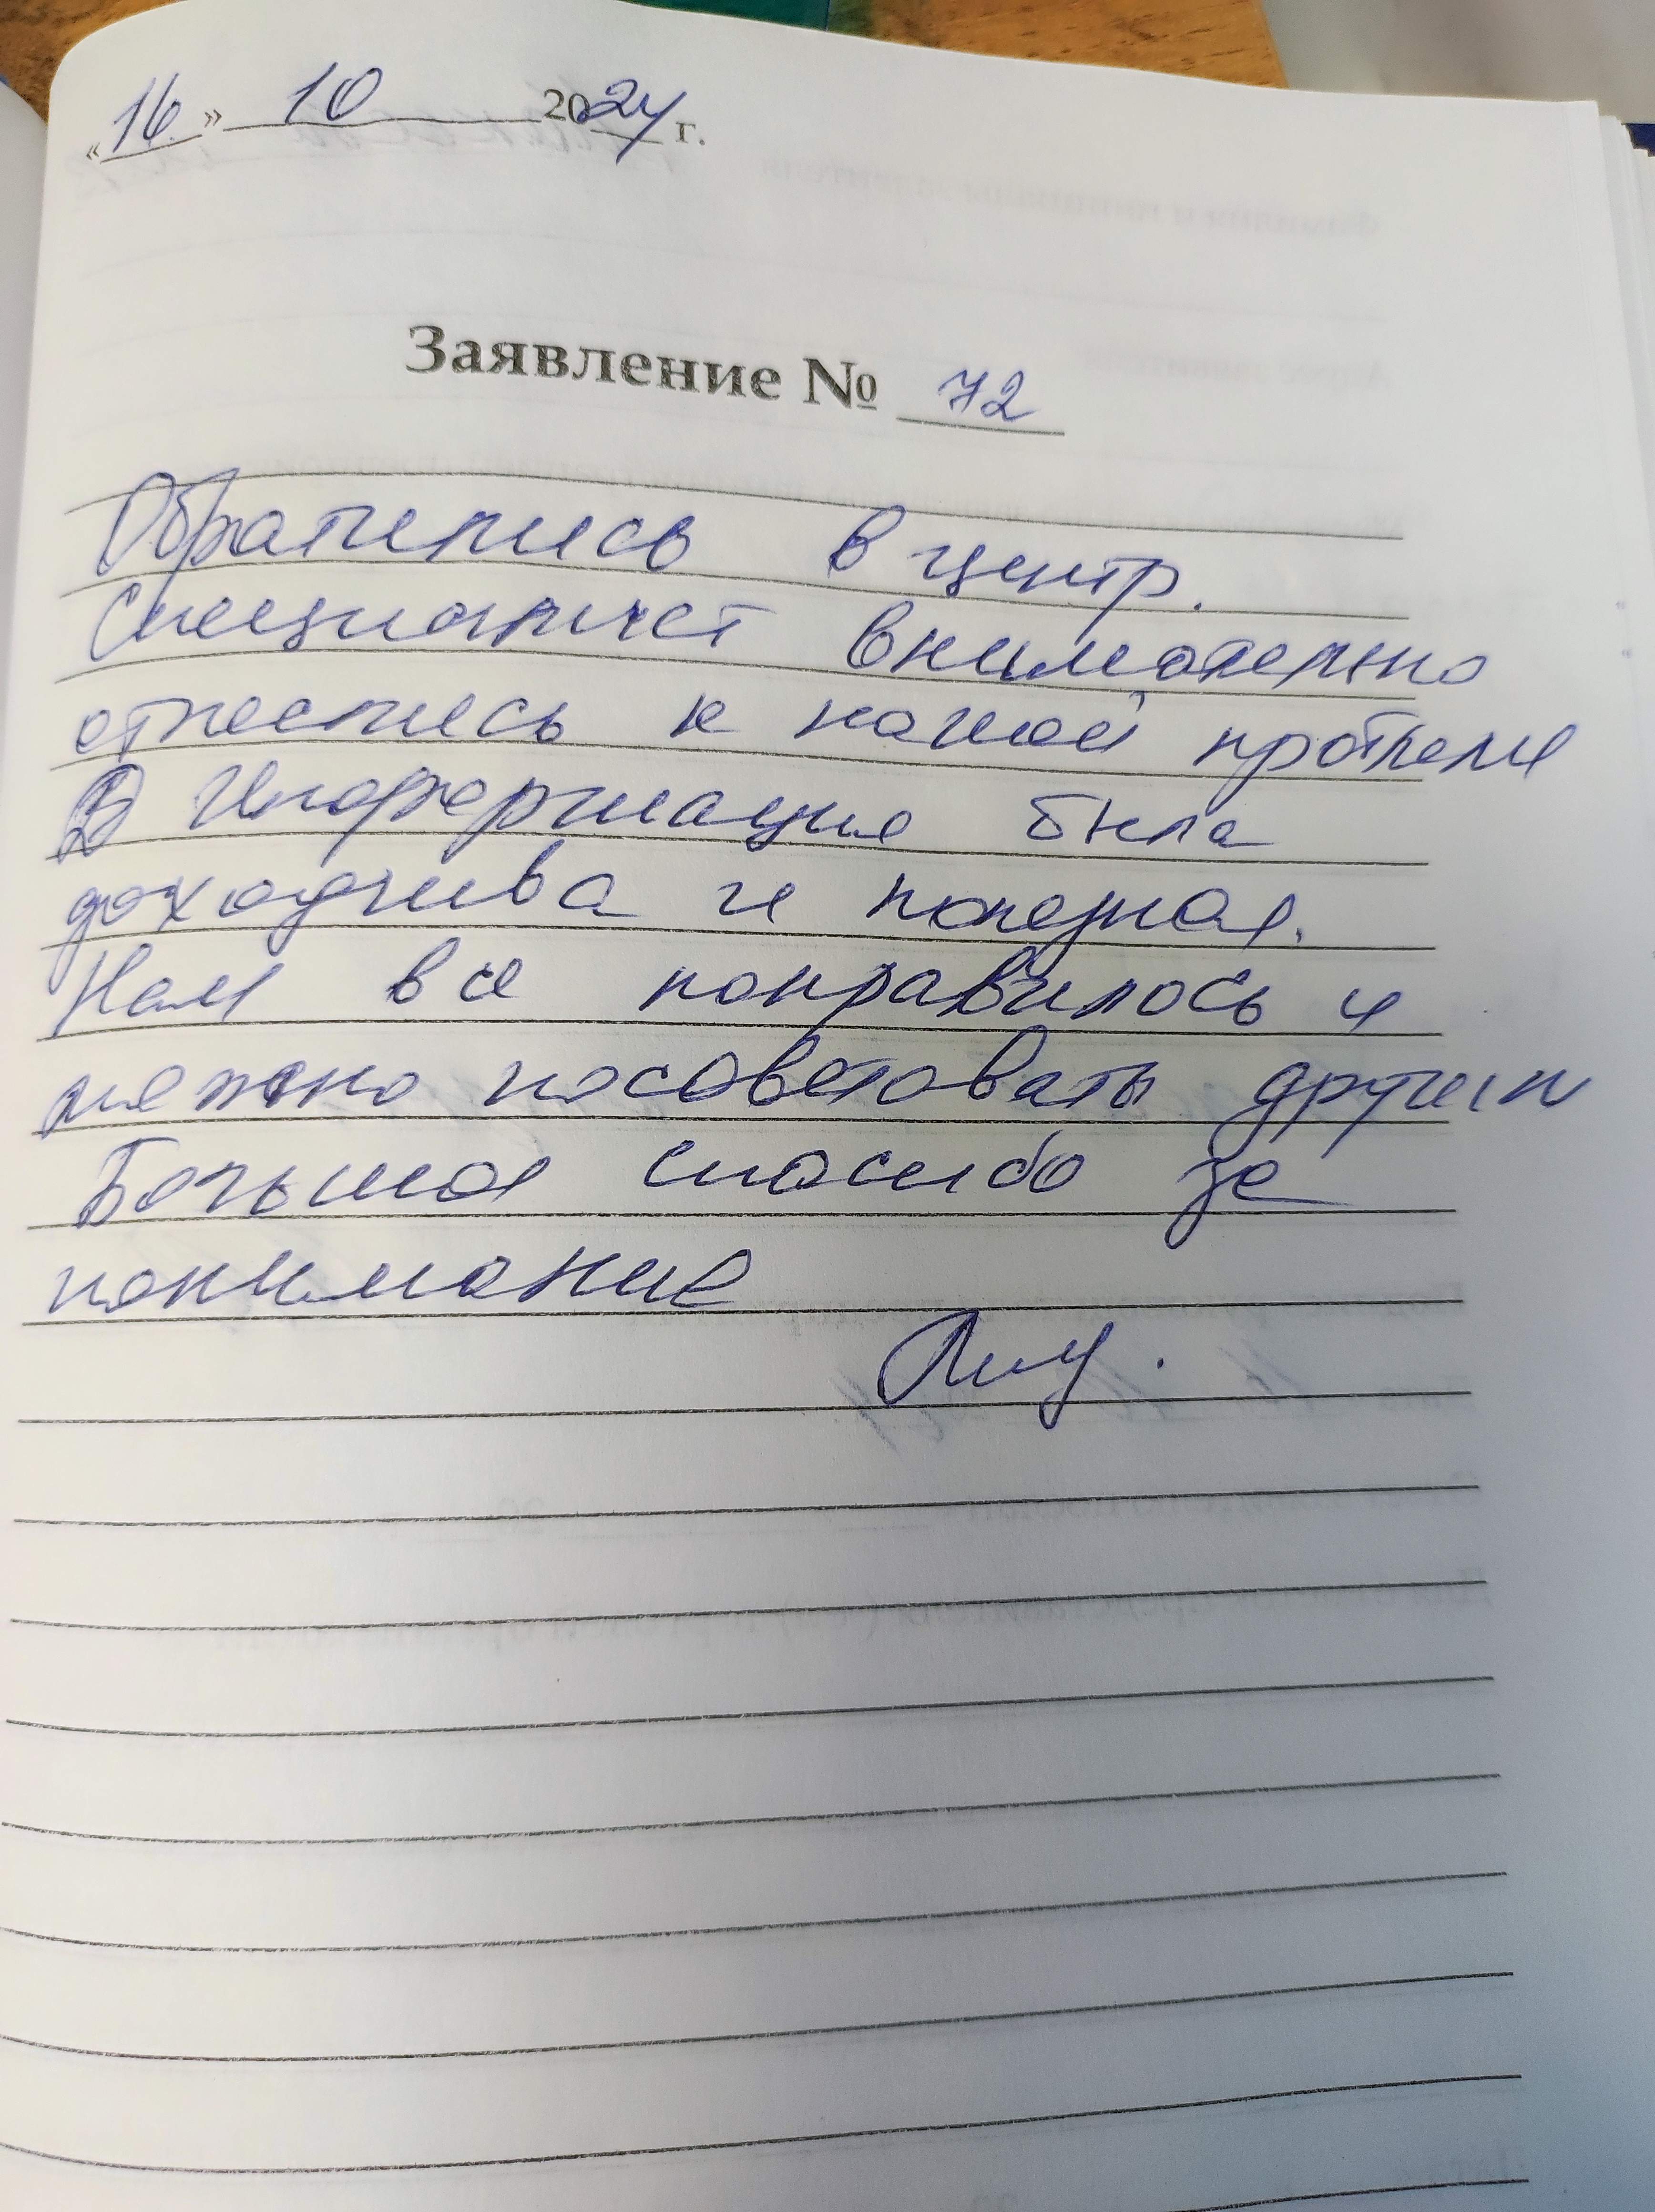 «16» 10 2024 г.
Заявление № 72
Обратились в центр.
Специалист внимательно
отнеслись к нашей проблеме
Информация была
доходчива и полезная.
Нам все понравилось и
можно посоветовать другим
Большое спасибо за
понимание